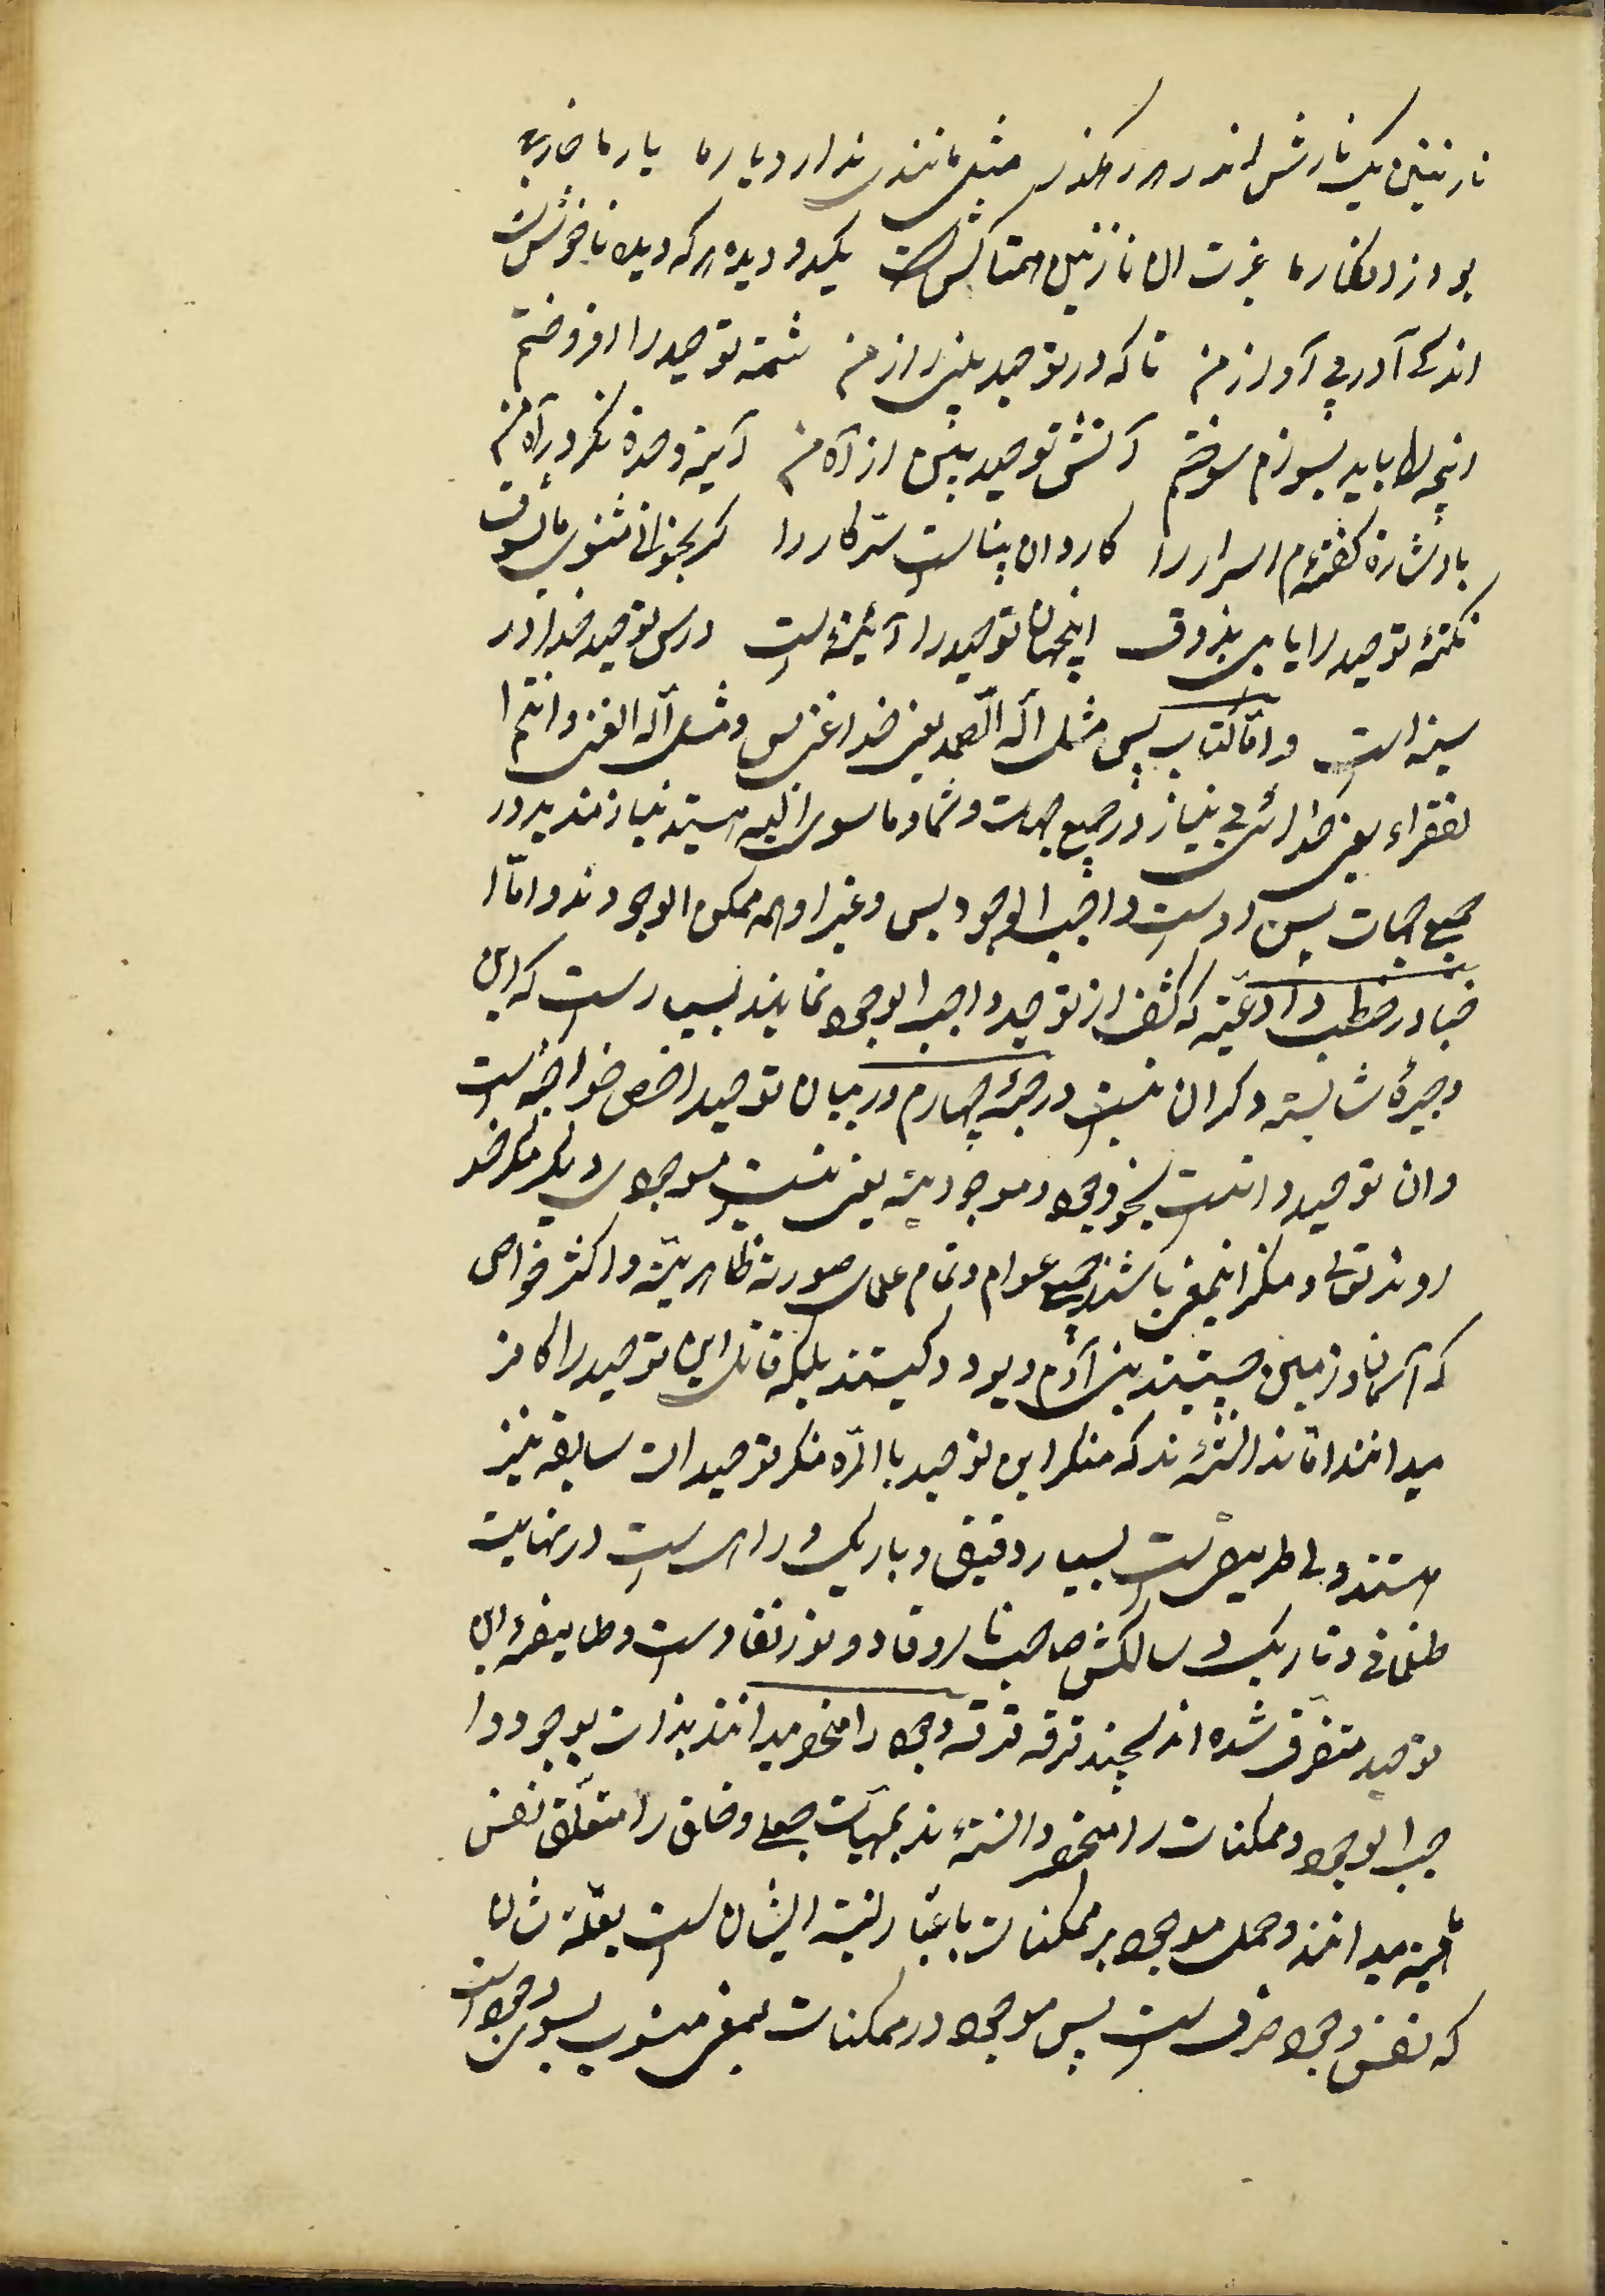 نازنینی یک نازش اندر هر گذر مثل مانندی ندارد یار ما یار ما خاری
بود از انکار ما غیرت آن نازنین همتا کش است یکدو دیده هر که دید ناخوش است
اندکی آ در پی آواز من تا که در توحید بینی راز من شمع توحید را افروختم
انچه را باید بسوزم سوختم آتش توحید بین از آه من آیة وحدة نگر در آه من
باشارة گفته‌ام اسرار را کاردان بیناست سر کار را گر بخوانی مثنوی ما بشوق
نکتهٔ توحید را یابی بذوق اینجهان توحید را آئینه است درس توحید خدا در
سینه است و اما کتاب پس مثل الله الصمد یعنی خدا غنی بس و مثل الله الغنی وانتم ا
لفقراء یعنی خدا است بی نیاز در جمیع جهات و شما و ما سوی الله هستید نیازمند در
جمیع جهات پس اوست واجب الوجود بس و غیر او همه ممکن الوجودند و اما ا
خبار در خطب و ادعیه که کشف از توحید واجب الوجود نمایند بسیار است که این
وجیزه شایسته ذکر آن نیست درجهٔ چهارم در بیان توحید اخص خواص است
و ان توحید ذاتست بنحو وجود موجودیة یعنی نیست موجودی دیگر مگر خد
اوند تعالی و منکر اینمعنی باشند جمیع عوام و تمام علمای صورت ظاهریة و اکثر خواص
که آسمان و زمین چیستند بنی آدم و دیو و دد کیستند بلکه قائل این توحید را کافر
میدانند اما ندانسته‌اند که منکر این توحید بالمره منکر توحیدات سابقه نیز
هستند ولی طریقی است بسیار دقیق و باریک و راهی است در نهایت
ظلمانی و تاریک و سالکش صاحب نار وقاد و نور نقاد است و طایفهٔ این
توحید متفرق شده‌اند بچند فرقه فرقه وجود را منحصر میدانند بذات بوجود وا
جب الوجود و ممکنات را منحصر دانسته‌اند بمهیات جعلی و خالق را متعلق نفس
ماهیة میدانند و حمل موجود بر ممکنات باعتبار نسبة ایشان است بعلة شان
که نفس وجود صرف است پس موجود در ممکنات بمعنی منسوب بسوی وجود است